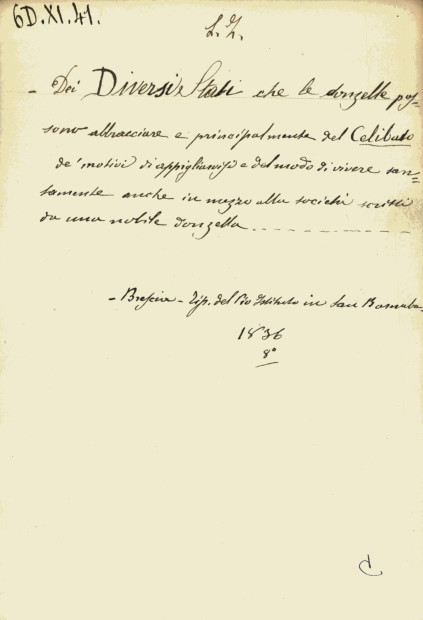 6D.XI.41.
L. Z.
- Dei Diversi Stati che le donzelle pos=
sono abbracciare e principalmente del Celibato
de' motivi di appigliarvisi e del modo di vivere san=
tamente anche in mezzo alla società scritti
da una nobile donzella
- Brescia - Tip. del Pio Istituto in San Barnaba.
1836
8°